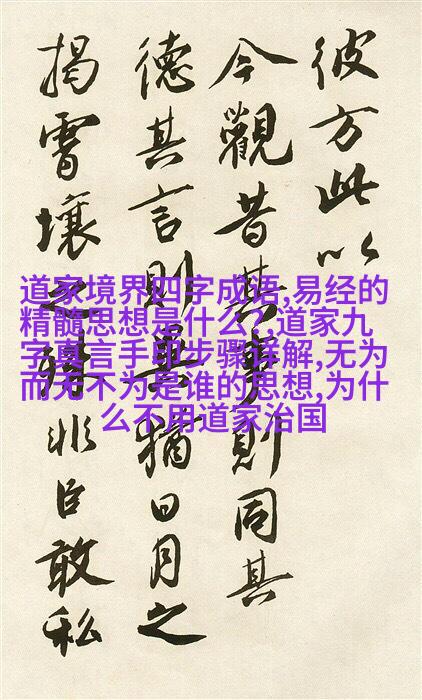 彼方此以
今觀昔其事則同其
德其言則異猶日月之
揭霄壤之殊非臣敢私
道家境界四字成语,易经的
精髓思想是什么?,道家九
字真言手印步骤详解,无为
而无不为是谁的思想,为什
么不用道家治国